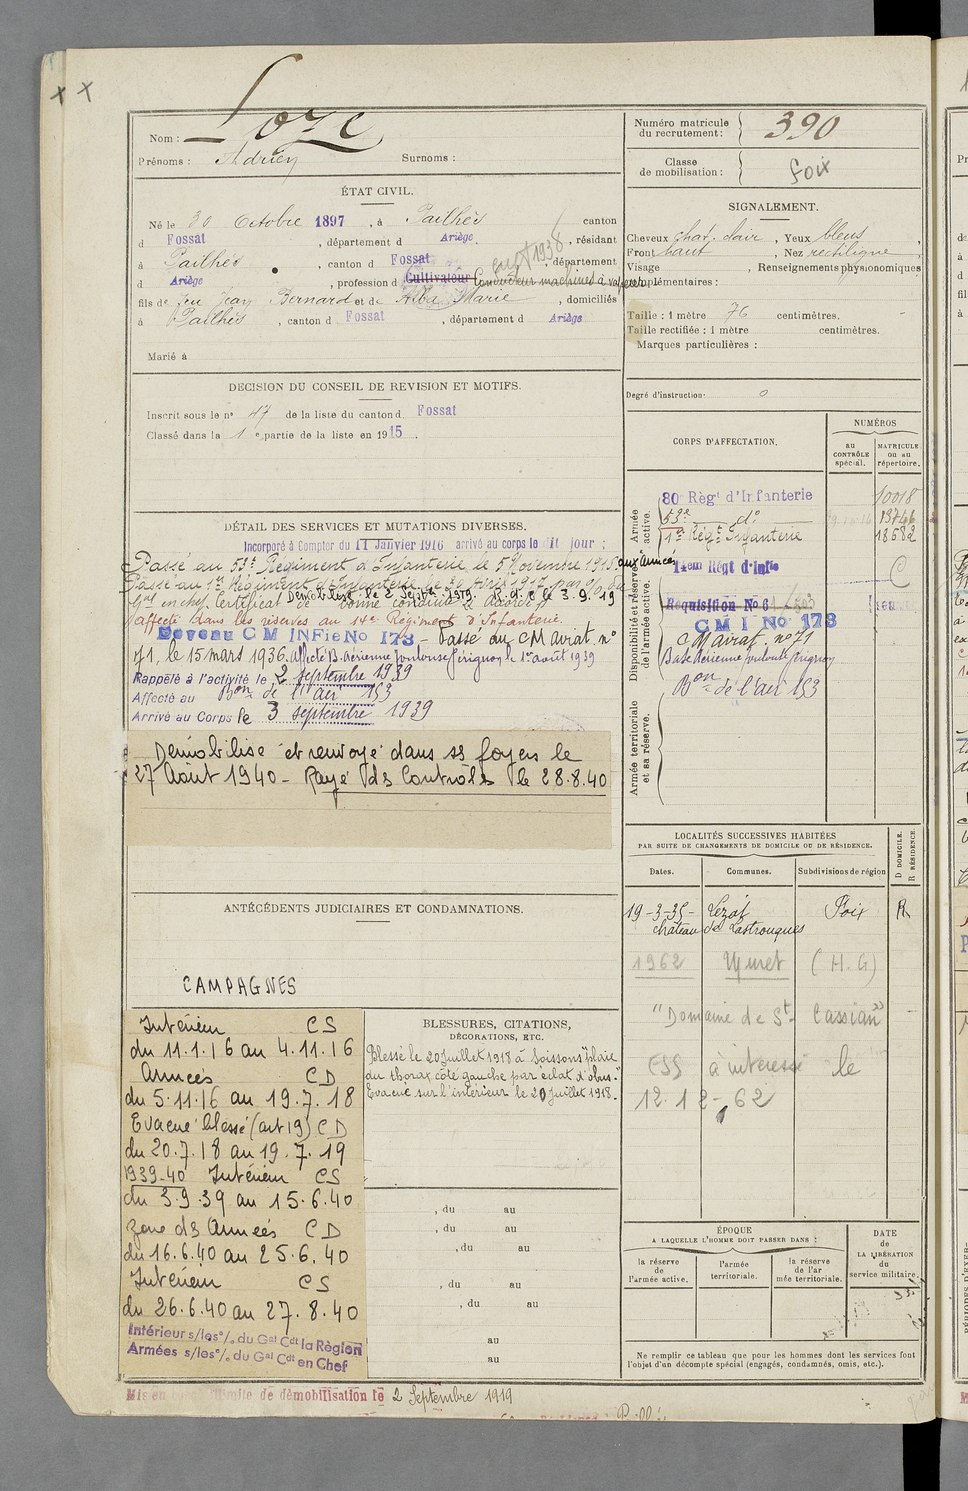 Nom : Loze
Prénoms : Adrien Surnoms :
Numéro matricule du recrutement : 390
Classe de mobilisation : Foix
ÉTAT CIVIL.
Né le 30 Octobre 1897, à Pailhès canton
d Fossat, département d Ariège, résidant
à Pailhès, canton d Fossat, département
d Ariège, profession d Cultivateur Conducteur machines à vapeur
fils de feu Jean Bernard et de Alba Marie, domiciliés
à Pailhès, canton d Fossat, département d Ariège
Marié à
SIGNALEMENT.
Cheveux chat. clair, Yeux bleus,
Front haut, Nez rectiligne
Visage , Renseignements physionomiques
complémentaires :
Taille : 1 mètre 76 centimètres.
Taille rectifiée : 1 mètre centimètres.
Marques particulières :
Degré d'instruction·
DECISION DU CONSEIL DE REVISION ET MOTIFS.
Inscrit sous le n° 47 de la liste du canton d Fossat
Classé dans la 1e partie de la liste en 1915.
DÉTAIL DES SERVICES ET MUTATIONS DIVERSES.
Incorporé à Compter du 11 Janvier 1916 arrivé au corps le dit jour :
Passé au 53e Régiment d'Infanterie le 5 Novembre 1916 aux Armées
Passé au 1er Régiment d'Infanterie le Avril 1917
Gal en chef. Certificat de bonne conduite accordé
Démobilisé le 2 Septbre 1919.
Affecté dans les réserves au 14e Régiment d'Infanterie.
Devenu C M INFie No 173 - Passé au CMairat n°
71, le 15 mars 1936. Affecté B. Aérienne Toulouse Pérignon le 1er août 1939
Rappelé à l'activité le 2 septembre 1939
Affecté au Bon de l'air 153
Arrivé au Corps le 3 septembre 1939
Démobilisé et renvoyé dans ss foyers le
27 Août 1940 - Rayé ds Contrôles le 28.8.40
CORPS D'AFFECTATION.
NUMÉROS
au CONTRÔLE spécial.
MATRICULE ou au répertoire.
Armée active.
80 Régt d'Infanterie 10018
53e do 13746
1er Régt Infanterie 18682
Disponibilité et réserve de l'armée active.
14em Régt d'Infie
Requisition No 6
C M I No 173
CMairat. n° 71
Base Aérienne Toulouse Pérignon
Bon de l'air 153
Armée territoriale et sa réserve.
LOCALITÉS SUCCESSIVES HABITÉES
PAR SUITE DE CHANGEMENTS DE DOMICILE OU DE RÉSIDENCE.
Dates. Communes. Subdivisions de région
D DOMICILE. R RÉSIDENCE.
19-3-35- Lezat Foix R
château de Lastronques
1962 Muret (H.G)
"Domaine de St- Cassian"
CSS à intéressé le
12.12-62
ANTÉCÉDENTS JUDICIAIRES ET CONDAMNATIONS.
CAMPAGNES
Intérieur CS
du 11.1.16 au 4.11.16
Armées CD
du 5.11.16 au 19.7.18
Evacué blessé (art 19) CD
du 20.7.18 au 19.7.19
1939-40 Intérieur CS
du 3.9.39 au 15.6.40
Zone ds Armées CD
du 16.6.40 au 25.6.40
Intérieur CS
du 26.6.40 au 27.8.40
Intérieur s/les o/. du Gal Cdt la Région
Armées s/les o/. du Gal Cdt en Chef
BLESSURES, CITATIONS,
DÉCORATIONS, ETC.
Blessé le 20 Juillet 1918 à Soissons "plaie
du thorax côté gauche par éclat d'obus."
Evacué sur l'intérieur le 20 juillet 1918.
, du au
, du au
, du au
, du au
, du au
au
au
ÉPOQUE
A LAQUELLE L'HOMME DOIT PASSER DANS :
la réserve de l'armée active.
l'armée territoriale.
la réserve de l'ar mée territoriale.
DATE de LA LIBÉRATION du service militaire.
Ne remplir ce tableau que pour les hommes dont les services font
l'objet d'un décompte spécial (engagés, condamnés, omis, etc.).
Mis en limite de démobilisation le 2 Septembre 1919